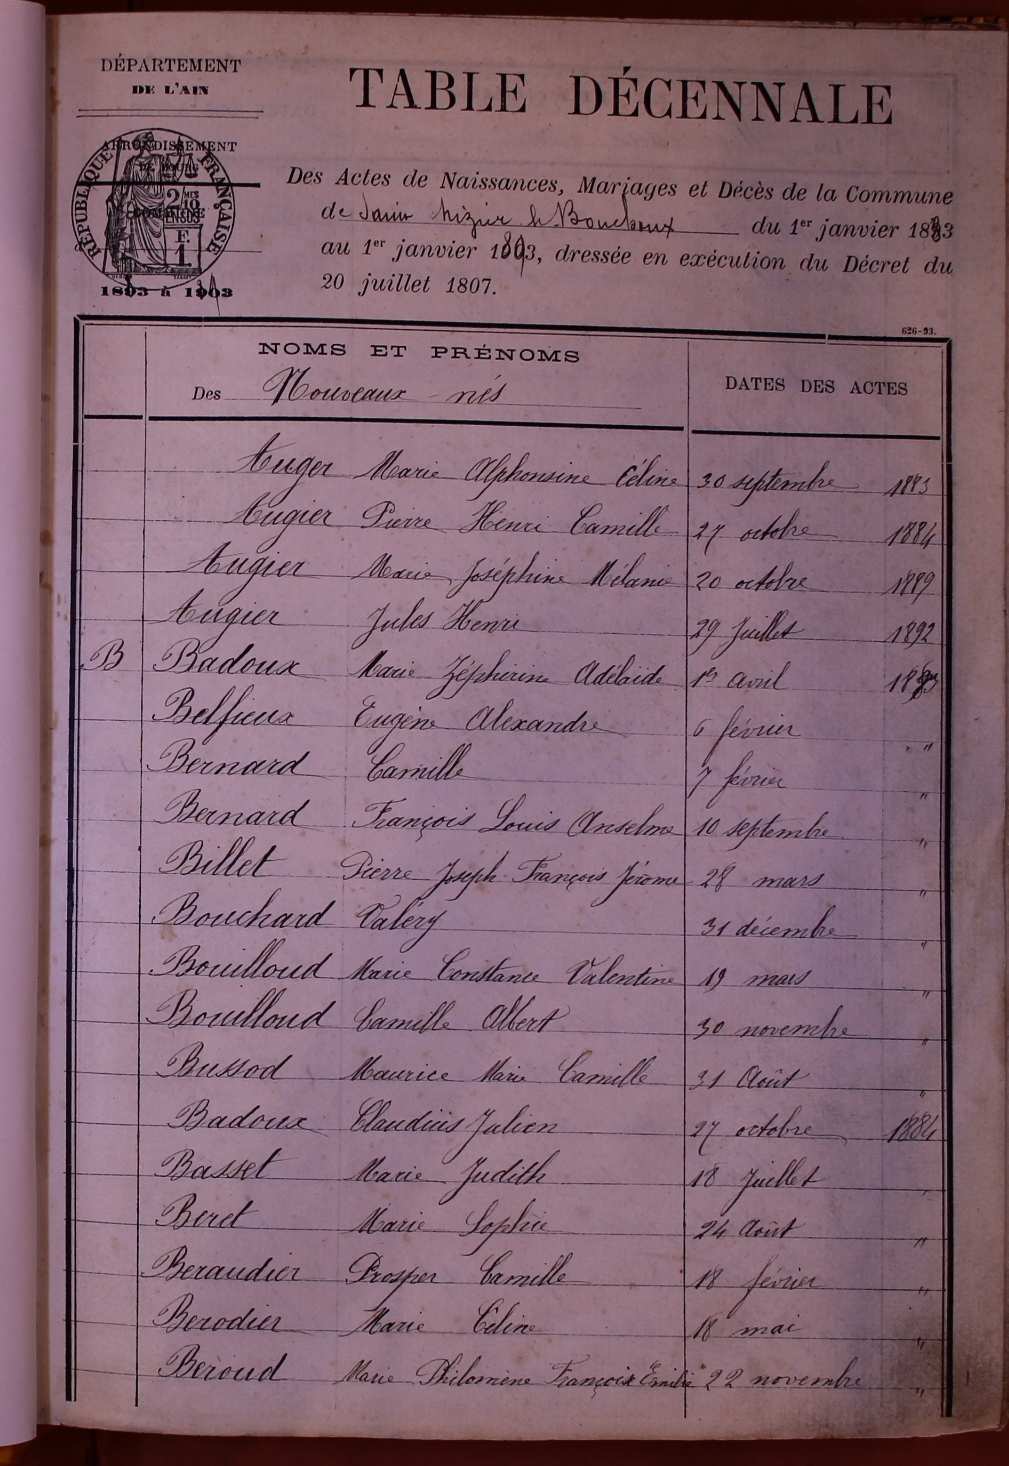 DÉPARTEMENT
DE L'AIN
ARRONDISSEMENT
RÉPUBLIQUE FRANÇAISE
1893 à 1903
TABLE DÉCENNALE
Des Actes de Naissances, Mariages et Décès de la Commune
de Saint Nizier le Bouchoux du 1er janvier 1883
au 1er janvier 1893, dressée en exécution du Décret du
20 juillet 1807.
626-93.
NOMS ET PRÉNOMS
Des Nouveaux-nés
DATES DES ACTES
Auger Marie Alphonsine Céline 30 septembre 1883
Augier Pierre Henri Camille 27 octobre 1884
Augier Marie Joséphine Mélanie 20 octobre 1889
Augier Jules Henri 29 Juillet 1892
B Badoux Marie Zéphirine Adélaïde 1er avril 1883
Belfieux Eugène Alexandre 6 février "
Bernard Camille 7 février "
Bernard François Louis Anselme 10 septembre "
Billet Pierre Joseph François Jérome 28 mars "
Bouchard Valéry 31 décembre "
Bouilloud Marie Constance Valentine 19 mars "
Bouilloud Camille Albert 30 novembre "
Bussod Maurice Marie Camille 31 Août "
Badoux Claudiüs Julien 27 octobre 1884
Basset Marie Judith 18 Juillet "
Beret Marie Sophie 24 Août "
Beraudier Prosper Camille 18 février "
Berodier Marie Céline 18 mai "
Beroud Marie Philomène Françoise Emilie 22 novembre "